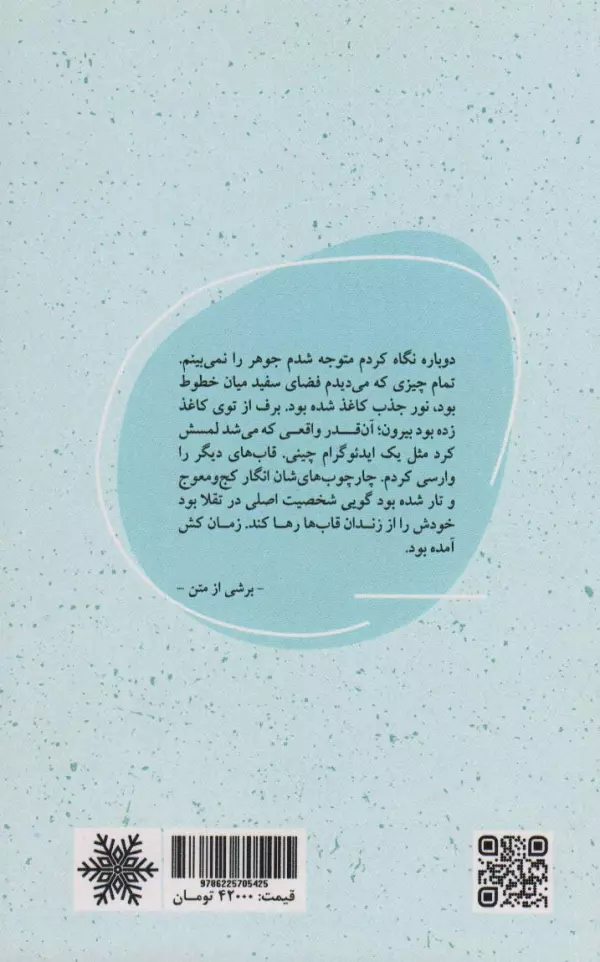 دوباره نگاه کردم متوجه شدم جوهر را نمی‌بینم.
تمام چیزی که می‌دیدم فضای سفید میان خطوط
بود، نور جذب کاغذ شده بود. برف از توی کاغذ
زده بود بیرون؛ آن‌قدر واقعی که می‌شد لمسش
کرد مثل یک ایدئوگرام چینی. قاب‌های دیگر را
وارسی کردم. چارچوب‌های‌شان انگار کج‌ومعوج
و تار شده بود گویی شخصیت اصلی در تقلا بود
خودش را از زندان قاب‌ها رها کند. زمان کش
آمده بود.
- برشی از متن -
9786225705425
قیمت: ۴۲۰۰۰ تومان